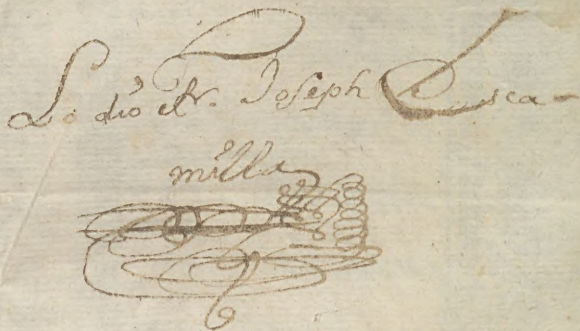 Lo dió el Sr. Joseph Esca-
milla